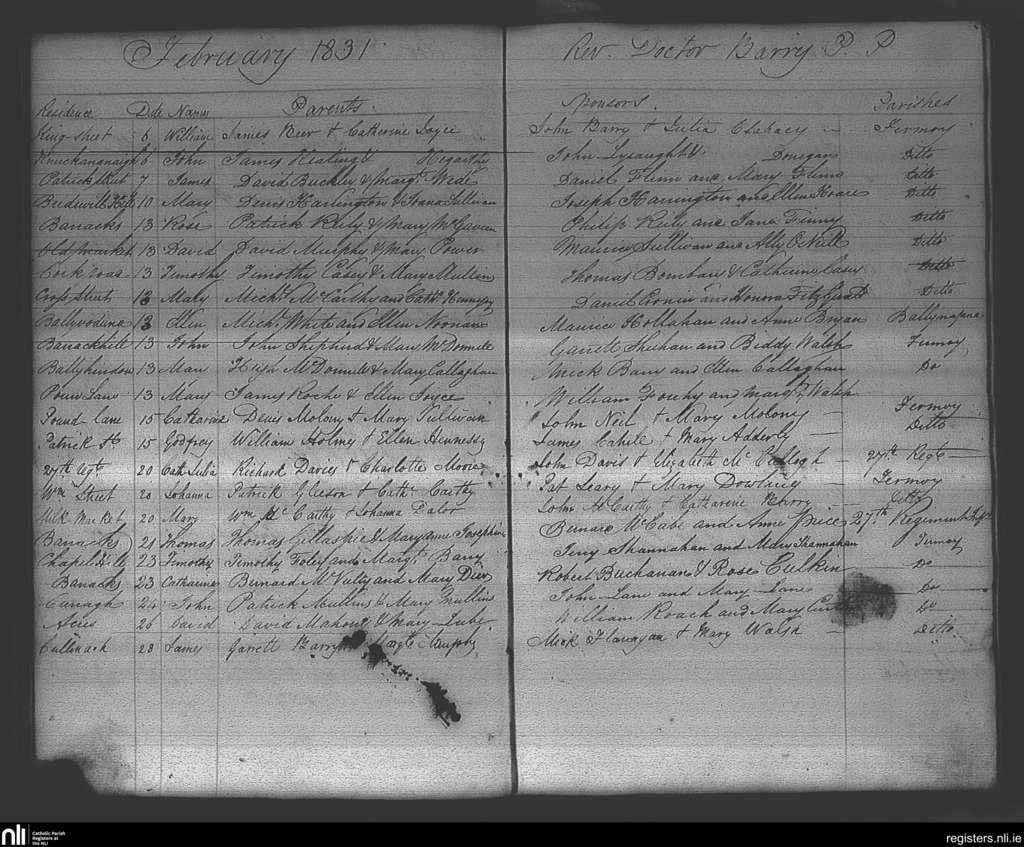 February 1831 Rev. Doctor Barry P. P
Residence Date Names Parents Sponsors Parishes
King Street 6 William James Beer & Catherine Joyce John Barry & Julia Clahacy Fermoy
Knuckananaigh 6 John James Keating & Hegarthy John Lysaught & Donegan Ditto
Patrick Stret 7 James David Buckley & Margt. Wede Daniel Flinn and Mary Flinn Ditto
Bridewell Hill 10 Mary Denis Harlington & Joana Sullivan Joseph Harrington and Ellen Hoare Ditto
Barracks 13 Rose Patrick Reily & Mary McGavan Philip Reily and Jane Finny Ditto
Old Market 13 David David Murphy & Mary Power Maurice Sullivan and Ally O'Neill Ditto
Cork road 13 Timothy Timothy Casey & Mary Mullin Thomas Bombary & Catherine Casey Ditto
Cross Street 13 Mary Michl. McCarthy and Cathe. Hennessy Daniel Cronin and Honora FitzGerald Ditto
Ballyvoduna 13 Ellen Michl. White and Ellen Noonan Maurice Hollahan and Anne Bryan Ballynapana
Barrackhill 13 John John Shepherd & Mary McDonnell Garrett Sheehan and Biddy Walsh Fermoy
Ballyhindon 13 Mary Hugh McDonnell & Mary Callaghan Mick Barry and Ellen Callaghan Do
Pound Lane 13 Mary James Roche & Ellen Joyce William Fouhy and Margt. Walsh
Pound Lane 15 Catharine Denis Molony & Mary Sullivan John Neil & Mary Molony Fermoy
Patrick St 15 Godfrey William Holmes & Ellen Hennessy James Cahill & Mary Adderly Ditto
27th Regt 20 Cath Julia Richard Davies & Charlotte Moore John Davis & Elizabeth Mc 27th Regt
Wm Street 20 Johanna Patrick Gleeson & Cathe. Casthy Pat Leary & Mary Dowlniey Fermoy
Milk Market 20 Mary Wm McCarthy & Johanna Dalor John McCarthy & Catharine Perry Ditto
Barracks 21 Thomas Thomas Gillaspie & Maryanne Josephine Bernard McCabe and Anne Price 27th Regiment
Chapel Hill 23 Timothy Timothy Foley and Margt. Barry Jerry Shannahan and Mary Shannahan Fermoy
Barracks 23 Catharine Bernard McVulty and Mary Deer Robert Buchanan & Rose Culkin Do
Curragh 24 John Patrick Mullins & Mary Mullins John Lane and Mary Lane Do
Acres 26 David David Mahony & Mary Lube William Roach and Mary Do
Cullenach 28 James Garrett Barry Margt. Murphy Mick Flanagan & Mary Walsh Ditto
nli Catholic Parish Registers at the NLI registers.nli.ie